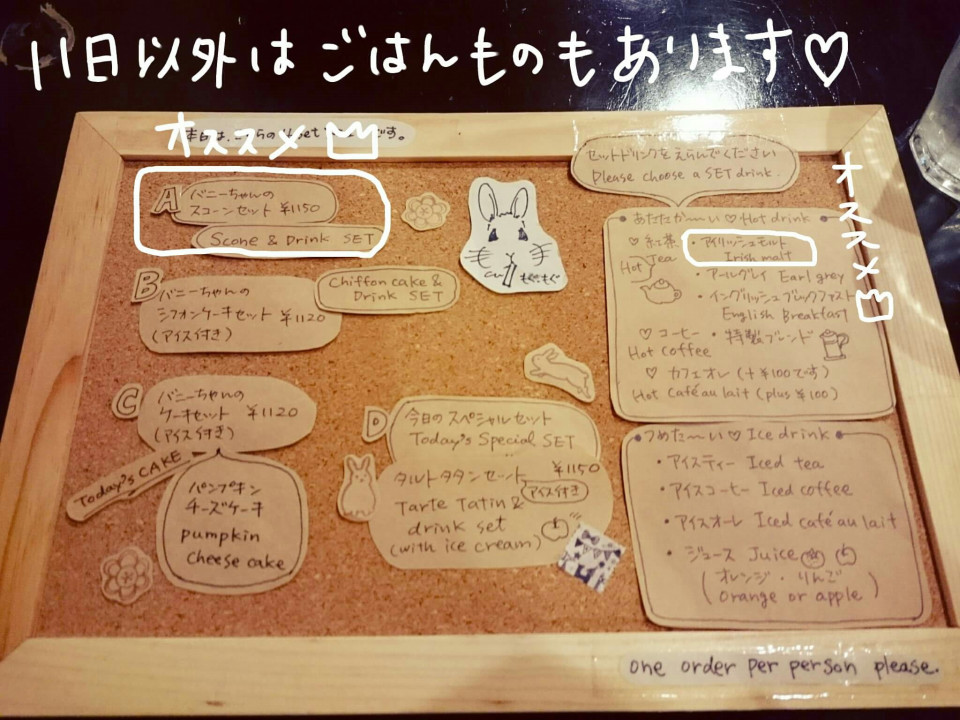 11日以外はごはんものもあります♡
オススメ
本日は、こちらの4set です。
A バニーちゃんの
スコーンセット ¥1150
Scone & Drink SET
B バニーちゃんの
シフォンケーキセット ¥1120
(アイス付き)
Chiffon cake &
Drink SET
C バニーちゃんの
ケーキセット ¥1120
(アイス付き)
Today's CAKE
パンプキン
チーズケーキ
pumpkin
cheese cake
D 今日のスペシャルセット
Today's Special SET
タルトタタンセット ¥1150
アイス付き
Tarte Tatin &
drink set
(with ice cream)
もぐもぐ
セットドリンクをえらんでください
Please choose a SET drink.
オススメ
あたたか〜い♡Hot drink
♡紅茶・アイリッシュモルト
Hot Tea Irish malt
・アールグレイ Earl grey
・イングリッシュブレックファスト
English Breakfast
♡コーヒー・特製ブレンド
Hot Coffee
♡カフェオレ(+¥100です)
Hot Café au lait (plus ¥100)
つめた〜い♡Ice drink
・アイスティー Iced tea
・アイスコーヒー Iced coffee
・アイスオーレ Iced café au lait
・ジュース Juice
(オレンジ・りんご
orange or apple)
one order per person please.